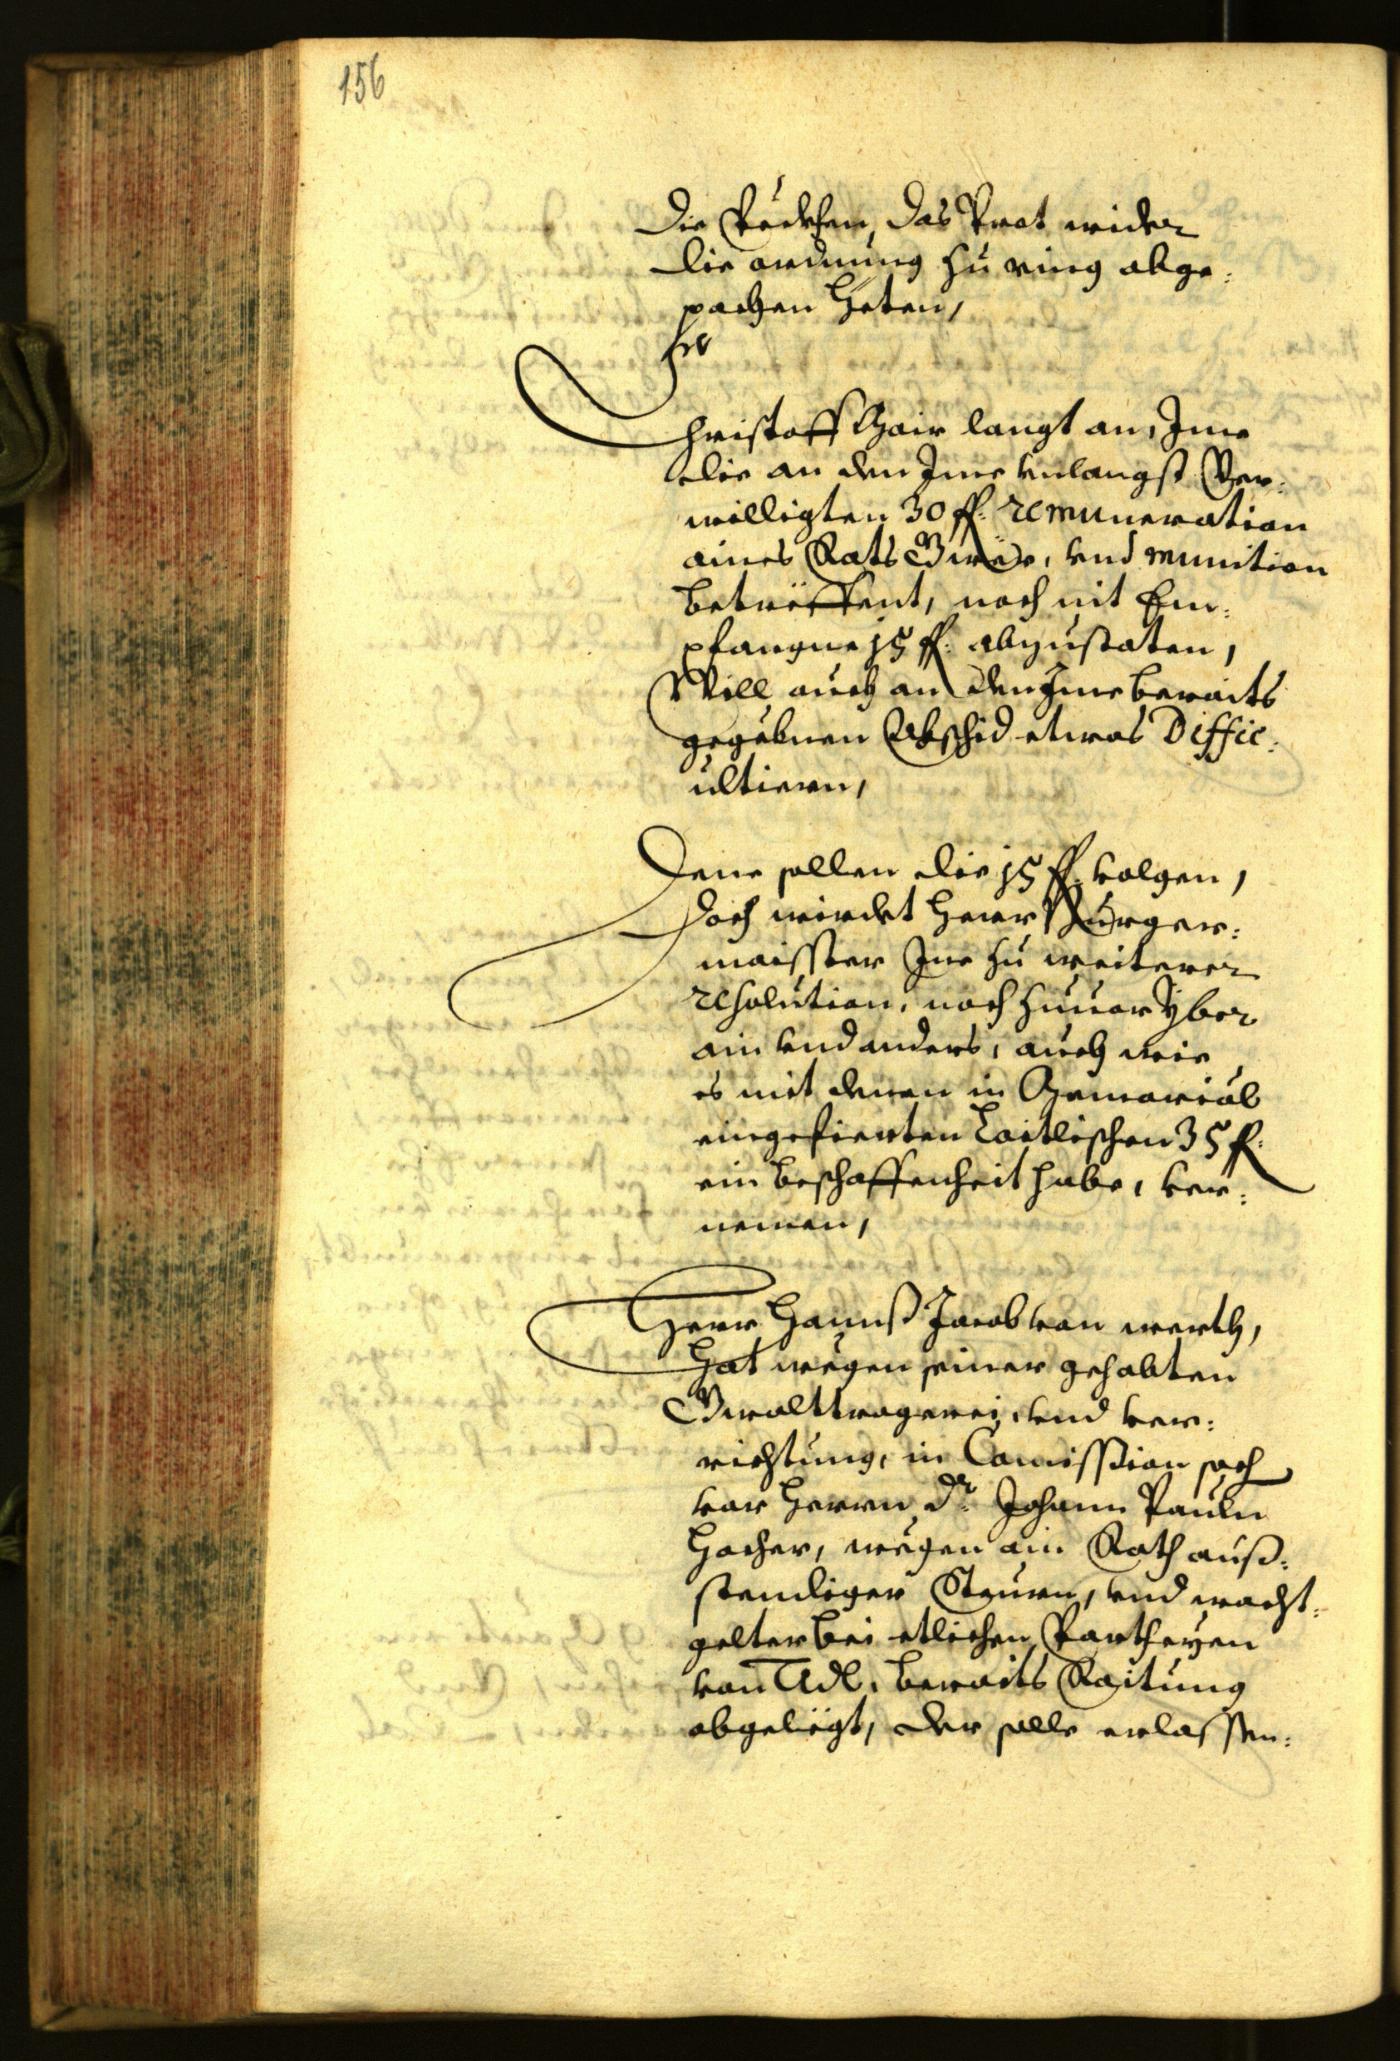 156
die Pëckhen, das Prot wider
die ordnung zu ring abge:
pachen heten,
Christoff Mair langt an, Ime
die an den Ime vnlangst Ver:
willigten 30 fl: remuneration
aines Rats Gwër, vnd munition
betrëffent, noch nit Em:
pfangne 15 fl: abzustaten,
Will auch an den Ime beraits
gegëbnen Abschid etwas Diffic:
ultiern,
Deme sollen die 15 fl: volgen,
doch wirdet herr Burger:
maisster Ine zu weiterer
resolution, noch zuuor yber
ain vnd anders, auch wie
es mit denen in Memorial
eingefierten 35 fl:
ein beschaffenheit habe, ver:
nemen,
Herr Hannß Jacob von werth,
hat wëgen seiner gehabten
Gwalttragerei, vnd ver:
richtung, in Comission sach
vor herrn Dr: Johann Pauln
Hocher, wëgen ain Rath auß:
stendiger Steurn, vnd wacht:
gelter bei etlichen Partheyen
von Adl, beraits Raitung
abgelëgt, der solle erlassen: